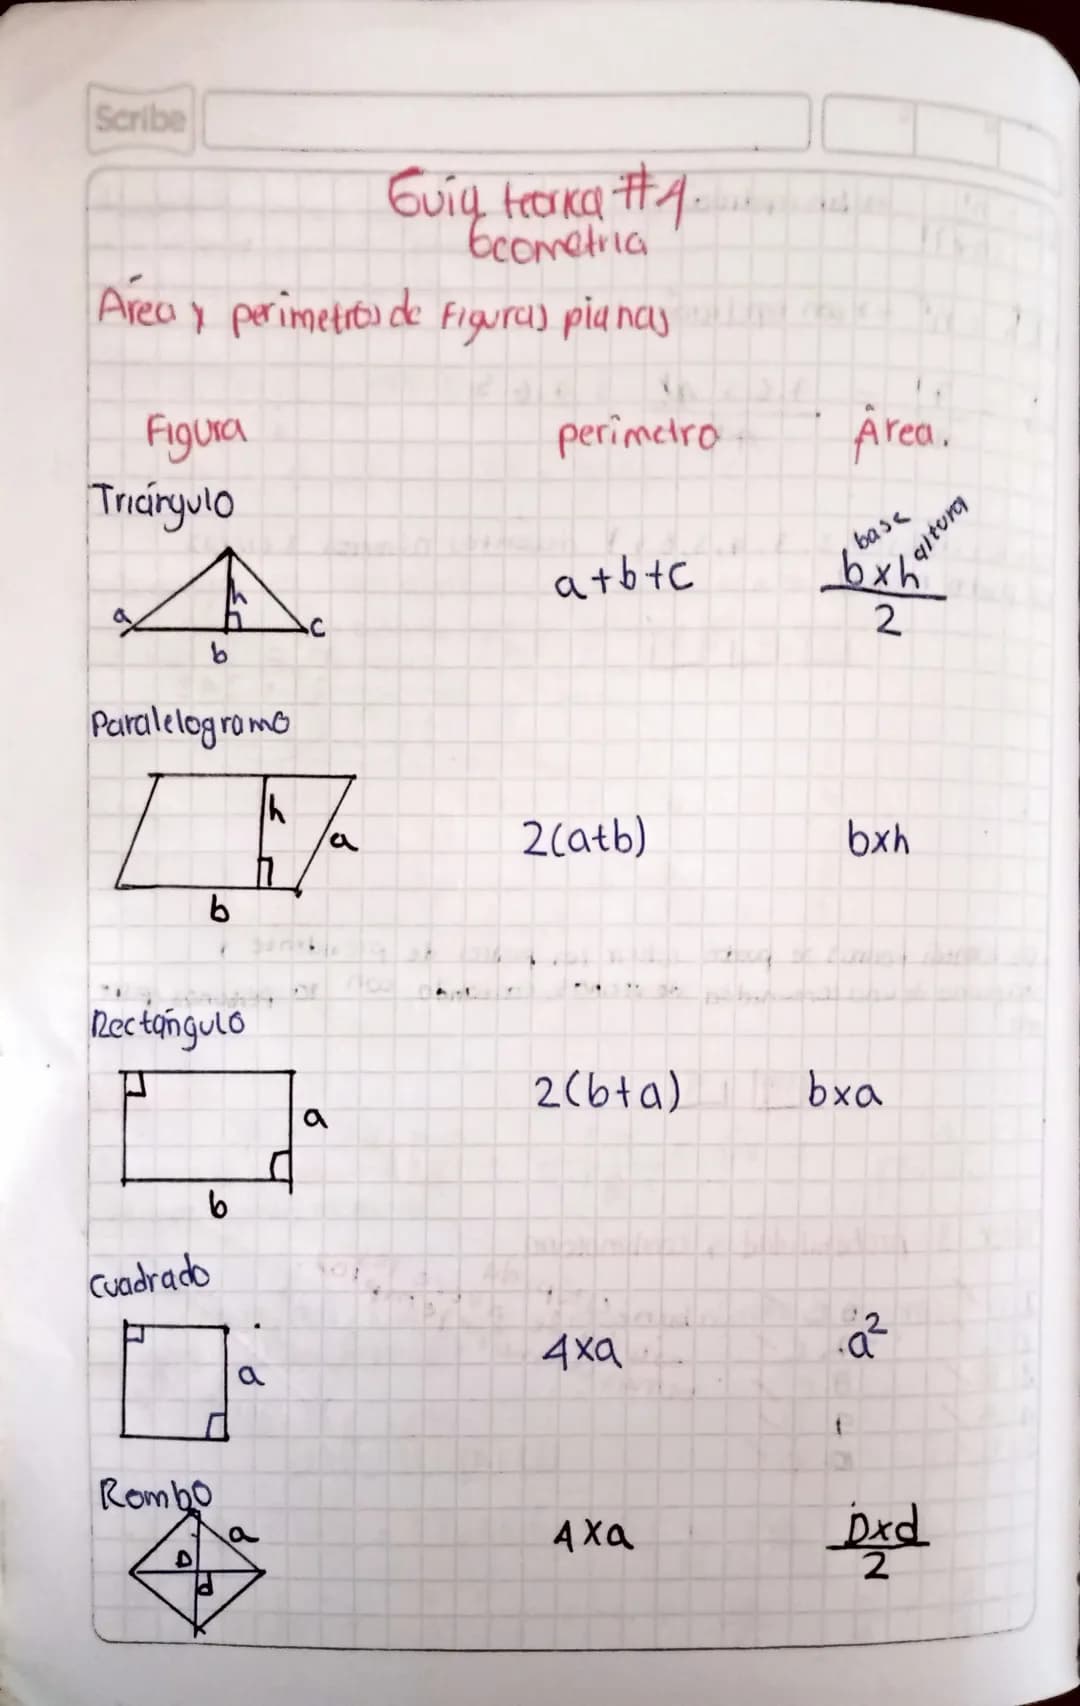 Scribe
Guía teorica #1
Geometria
Área y perimetros de Figuras planas
Figura perimetro Área.
Triángulo
a h b c
a+b+c
base altura
bxh
2
Paralelogramo
h a b
2(a+b) bxh
Rectángulo
a b
2(b+a) bxa
Cuadrado
a
4xa a²
Rombo
a D d
4xa
Dxd
2